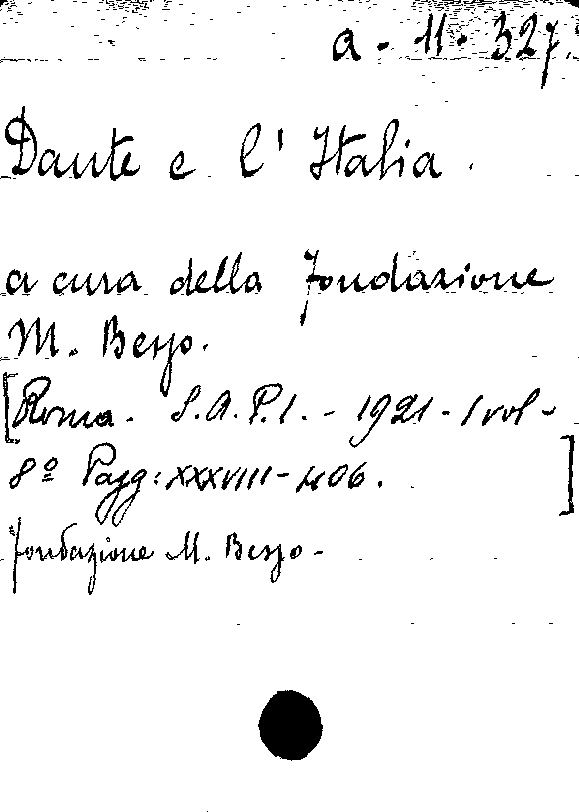 a - 11 - 327.
Dante e l' Italia.
a cura della fondazione
M. Besso.
[Roma - S.A.P.I. - 1921 - 1 vol -
8º Pagg: XXXVIII - 406.]
fondazione M. Besso -